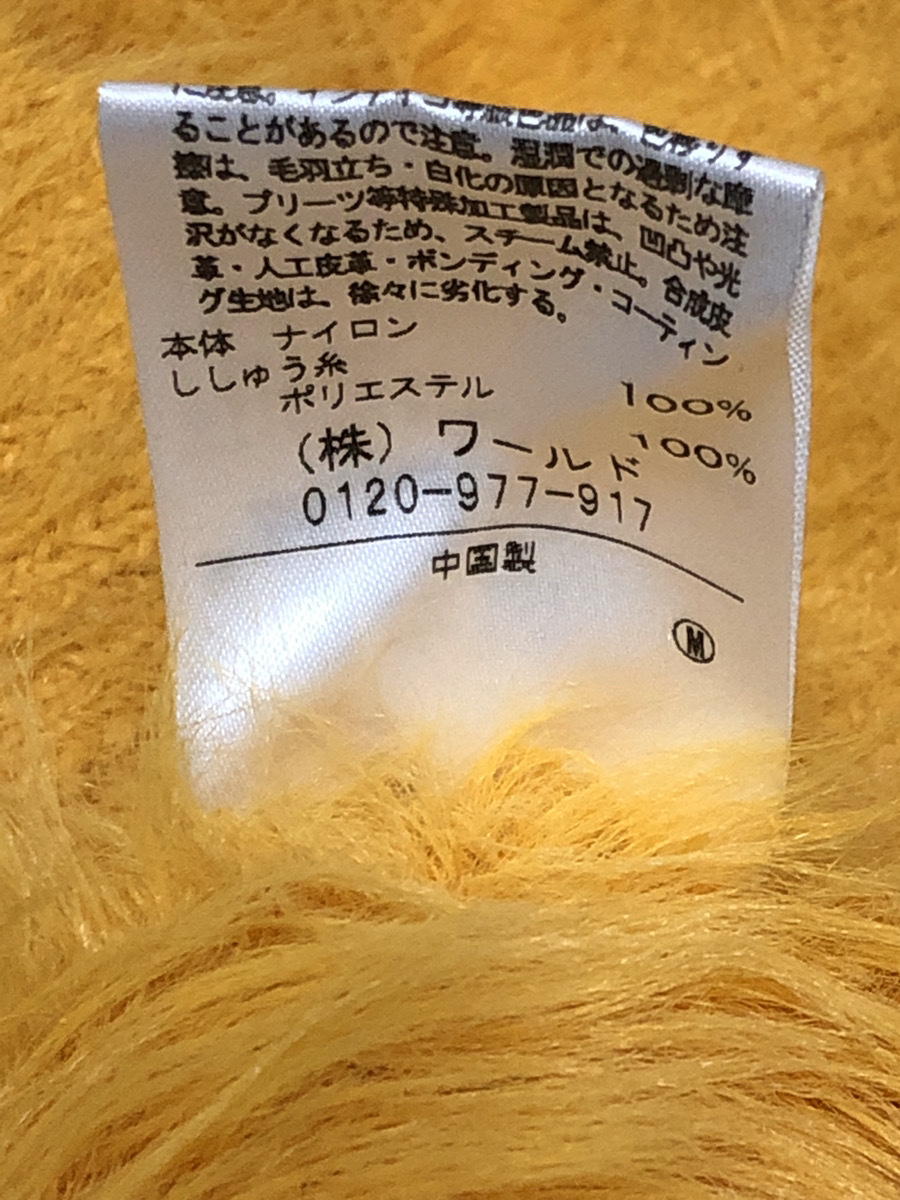 に注意。インディゴ等濃色品は、色移りす
ることがあるので注意。湿潤での過剰な摩
擦は、毛羽立ち・白化の原因となるため注
意。プリーツ等特殊加工製品は、凹凸や光
沢がなくなるため、スチーム禁止。合成皮
革・人工皮革・ボンディング・コーティン
グ生地は、徐々に劣化する。
本体 ナイロン 100%
ししゅう糸
ポリエステル 100%
(株) ワールド
0120-977-917
中国製
M